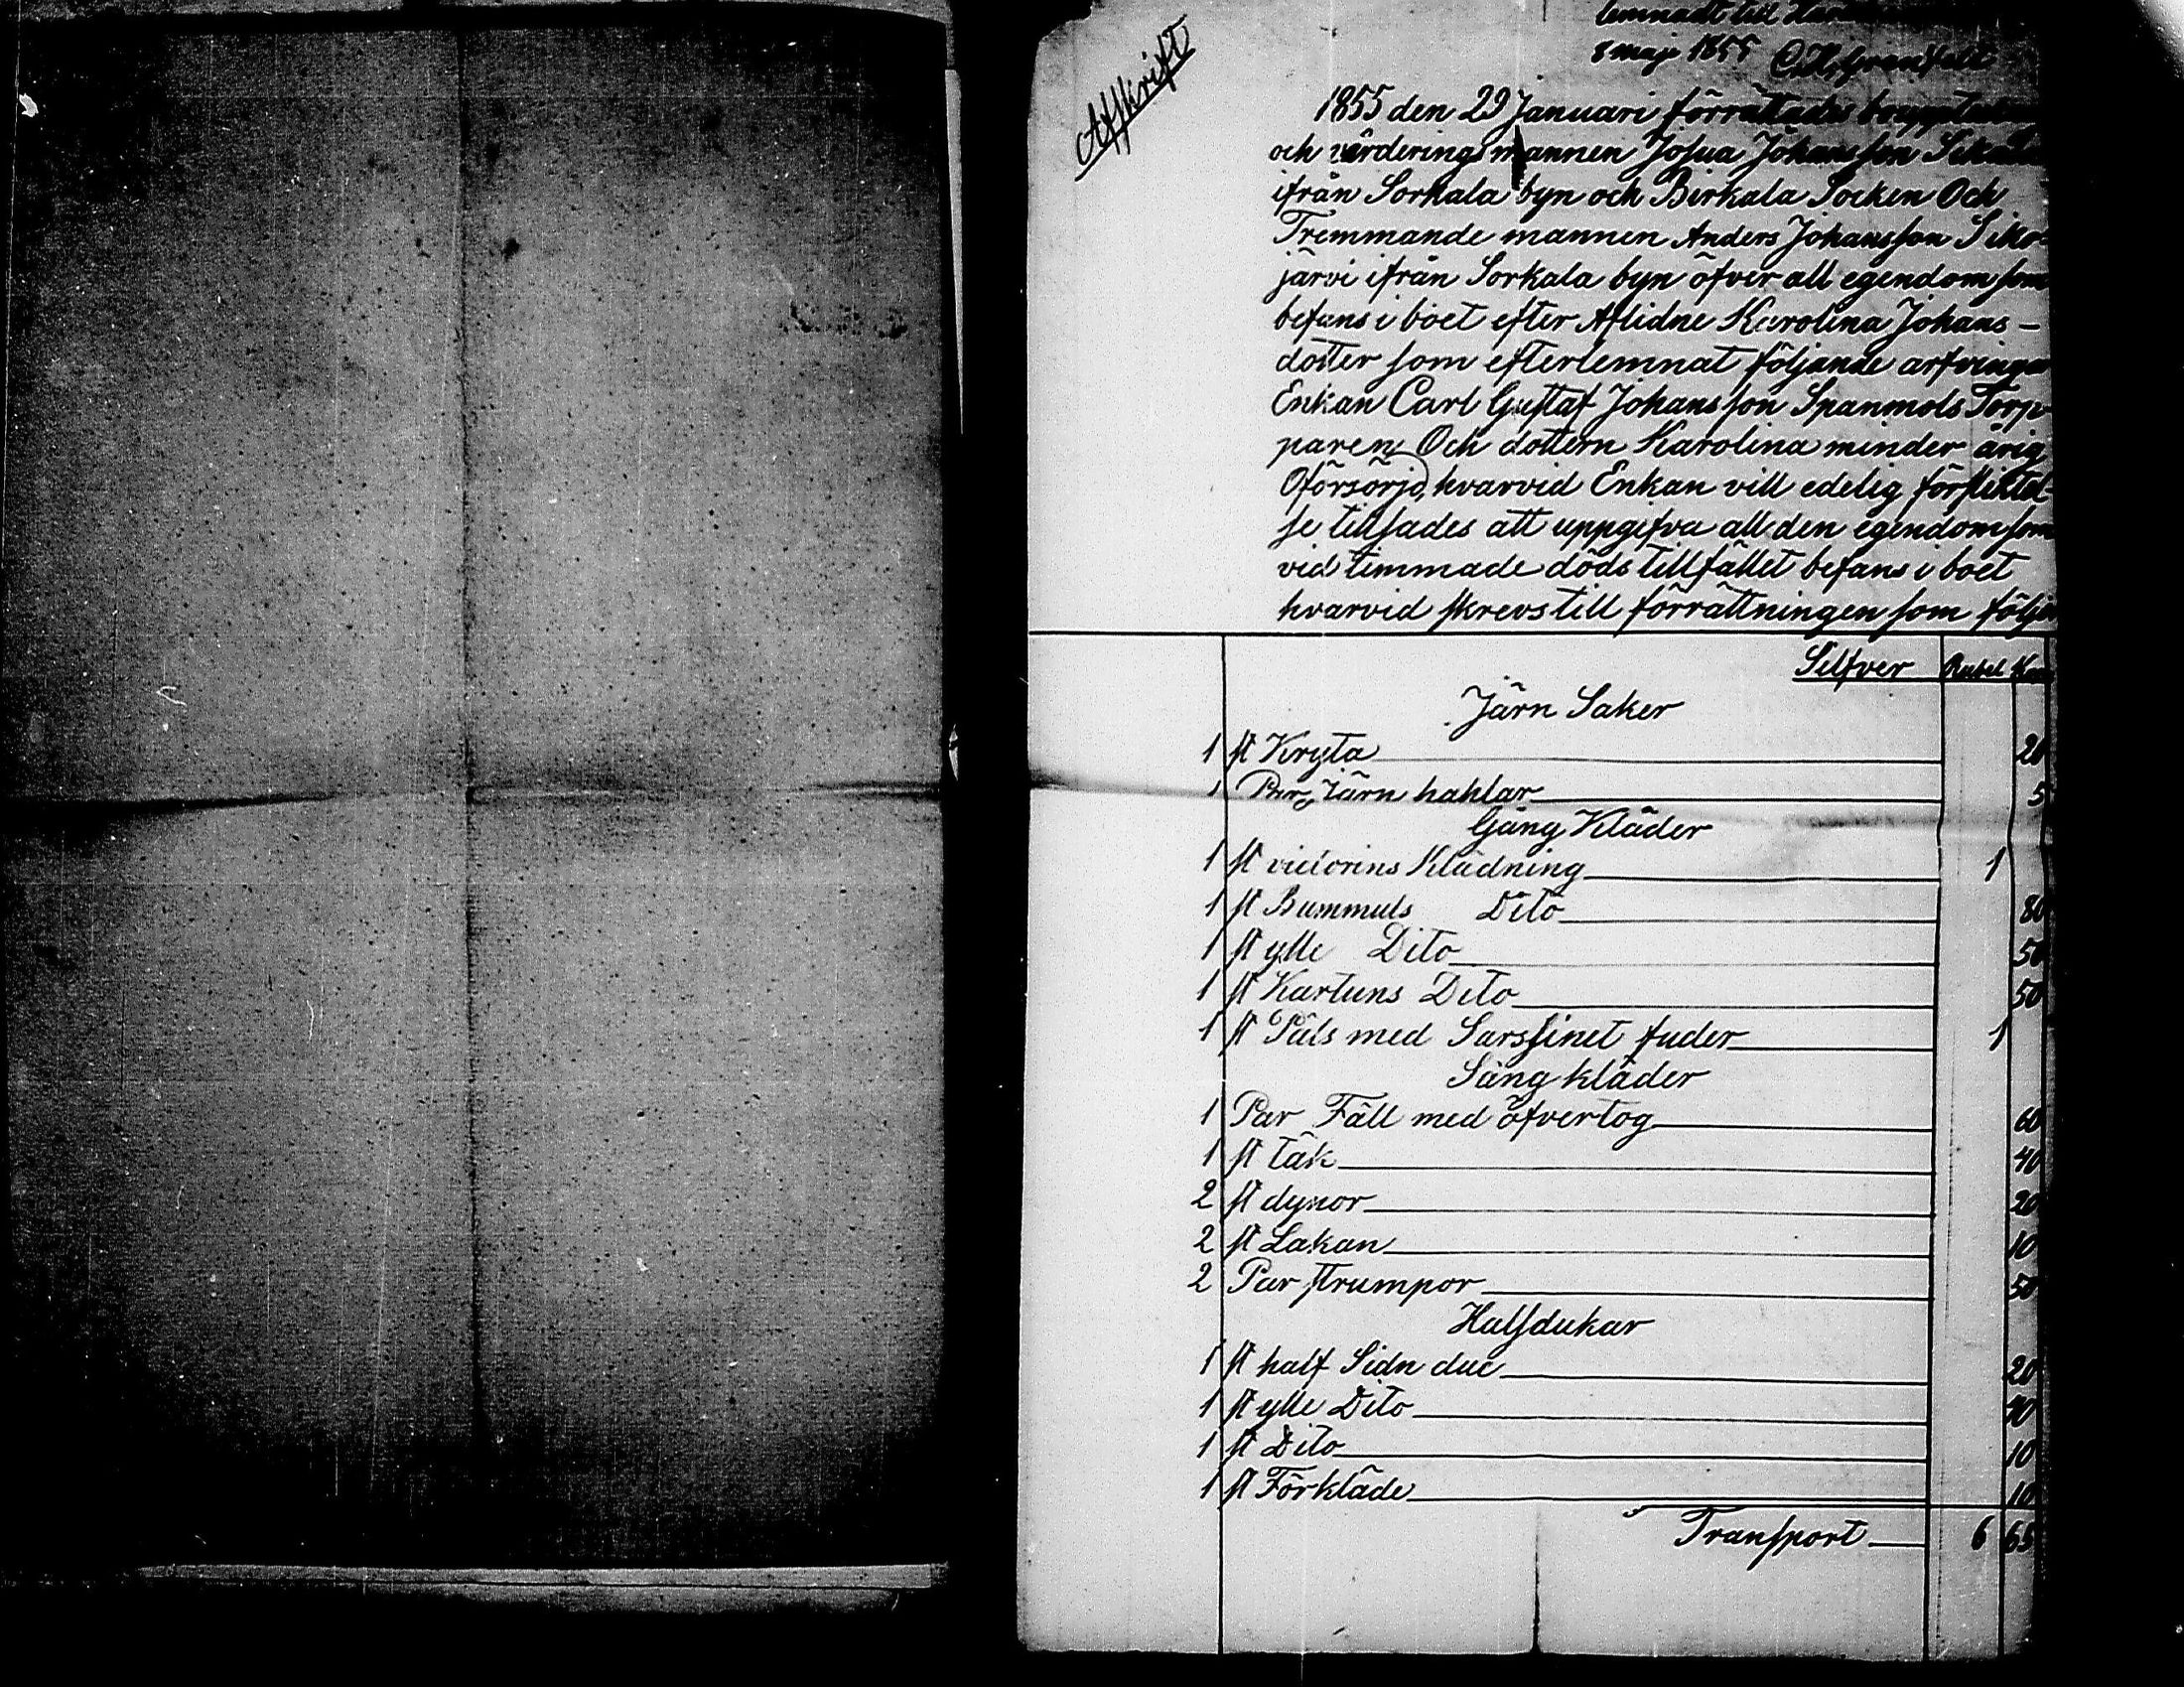 lemnadt till
8 maji 1855
Afskrift
1855 den 29 Januari förrättades
och värderings mannen Josua Johansson
ifrån Sorkala byn och Birkala Socken Och
Tremmande mannen Anders Johansson Siko-
järvi ifrån Sorkala byn öfver all egendom som
befans i boet efter Aflidne Karolina Johans-
dotter som efterlemnat följande arfvingar
Enkan Carl Gustaf Johansson Spanmols Torp-
paren Och dottern Karolina minder årig
Oförsörjd, hvarvid Enkan vill edelig
se tillsades att uppgifva all den egendom som
vid timmade döds tillfället befans i boet
hvarvid skrevs till förrättningen som följer
Silfver Rubel
Järn Saker
1 st Kryta 20
1 Par Järn hahlar 5
Gång Kläder
1 st victorins Klädning 1
1 st Bummuls Dito 80
1 st ylle Dito 50
1 st Kartuns Dito 50
1 st Päls med Sarssinet fuder 1
Säng kläder
1 Par Fäll med öfvertog 60
1 st täk 40
2 st dynor 20
2 st Lakan 10
2 Par strumpor 50
Halsdukar
1 st half Sidn duc 20
1 st ylle Dito
1 st Dito 10
1 st Förkläde 10
Transport 6 65